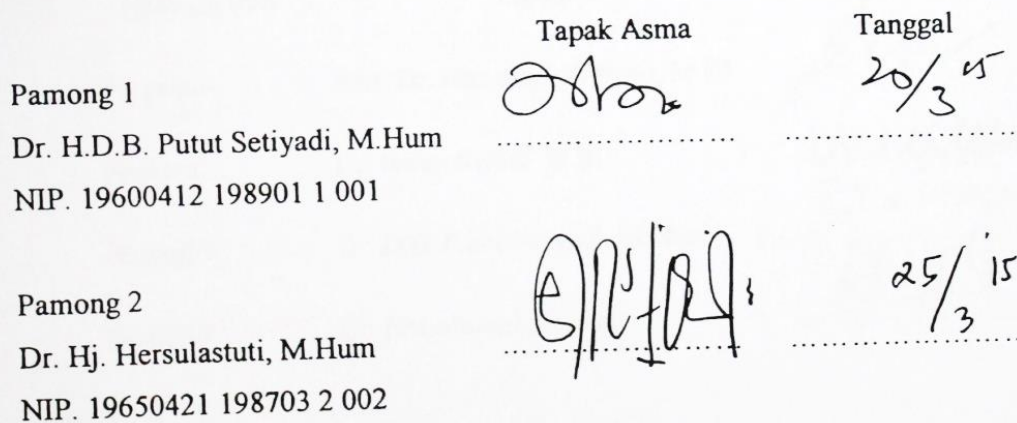 Tapak Asma Tanggal
20/3 15
Pamong 1
Dr. H.D.B. Putut Setiyadi, M.Hum
NIP. 19600412 198901 1 001
25/3 '15
Pamong 2
Dr. Hj. Hersulastuti, M.Hum
NIP. 19650421 198703 2 002